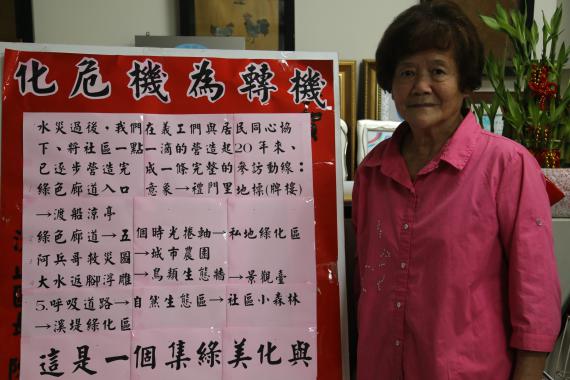 化危機為轉機
水災過後，我們在義工們與居民同心協
下、將社區一點一滴的營造起20年來、
已逐步營造完成一條完整的參訪動線：
綠色廊道入口意象→禮門里地標(牌樓)
→渡船涼亭
綠色廊道→五個時光捲軸→私地綠化區
阿兵哥救災圖→城市農園
大水返腳浮雕→鳥類生態牆→景觀臺
5.呼吸道路→自然生態區→社區小森林
→溪堤綠化區
這是一個集綠美化與